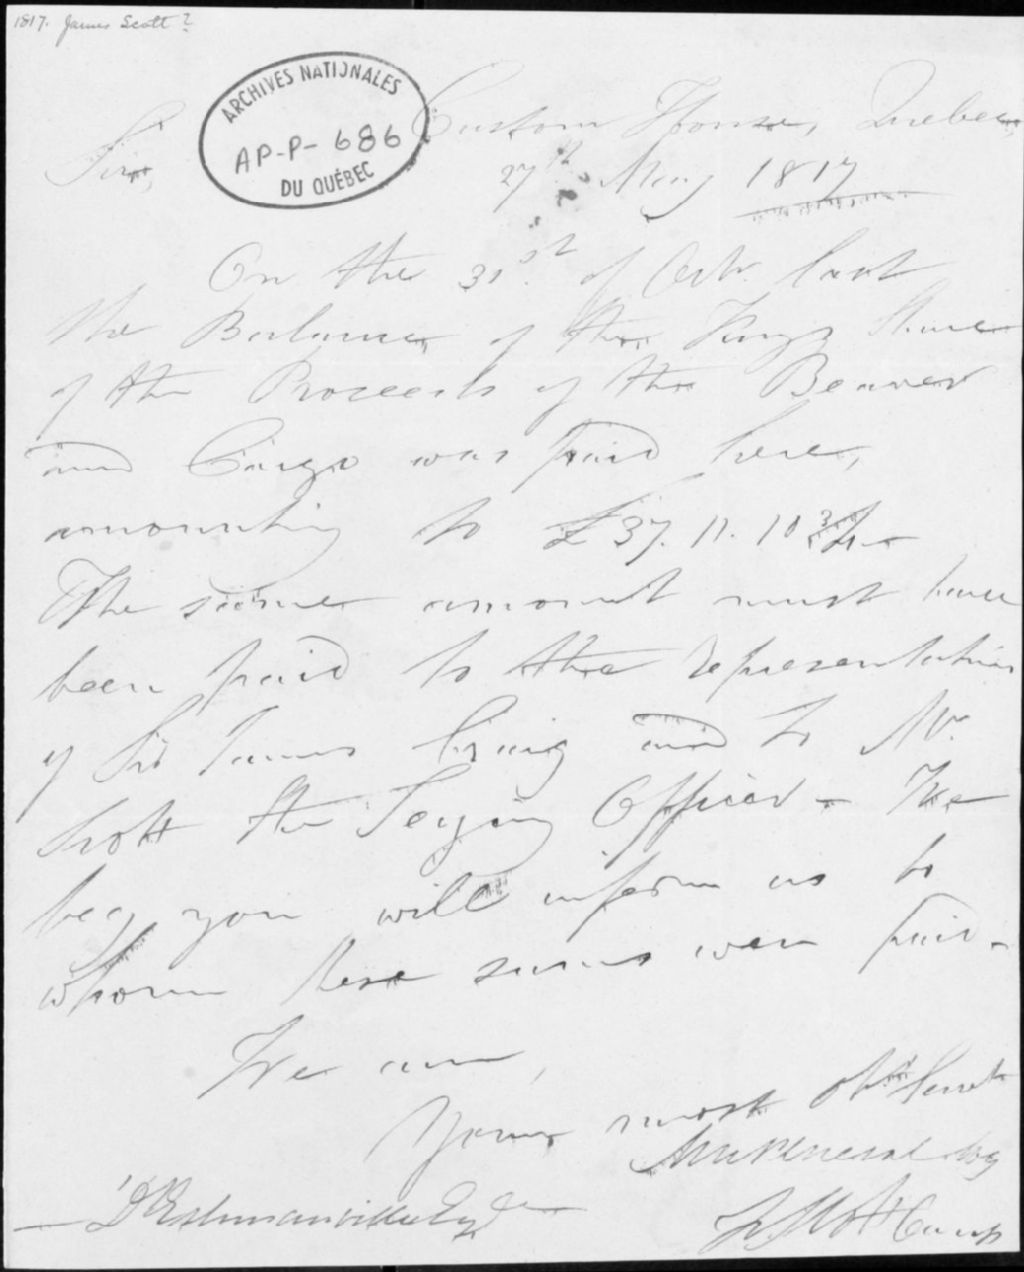 1817. James Scott?
ARCHIVES NATIONALES
AP-P-686
DU QUÉBEC
Custom House, Quebec,
Sir,
27th May 1817
On the 31st of Octr. last
the Balance of the Kings Share
of the Proceeds of the Beaver
and Cargo was paid here,
amounting to £37.11.10 3/4
The same amount must have
been paid to the representatives
of Sir James Craig and to Mr.
Scott the Seizing Officer - We
beg you will inform us to
whom these sums were paid -
We are,
Your most Obt. Servt
Esqr
Comp